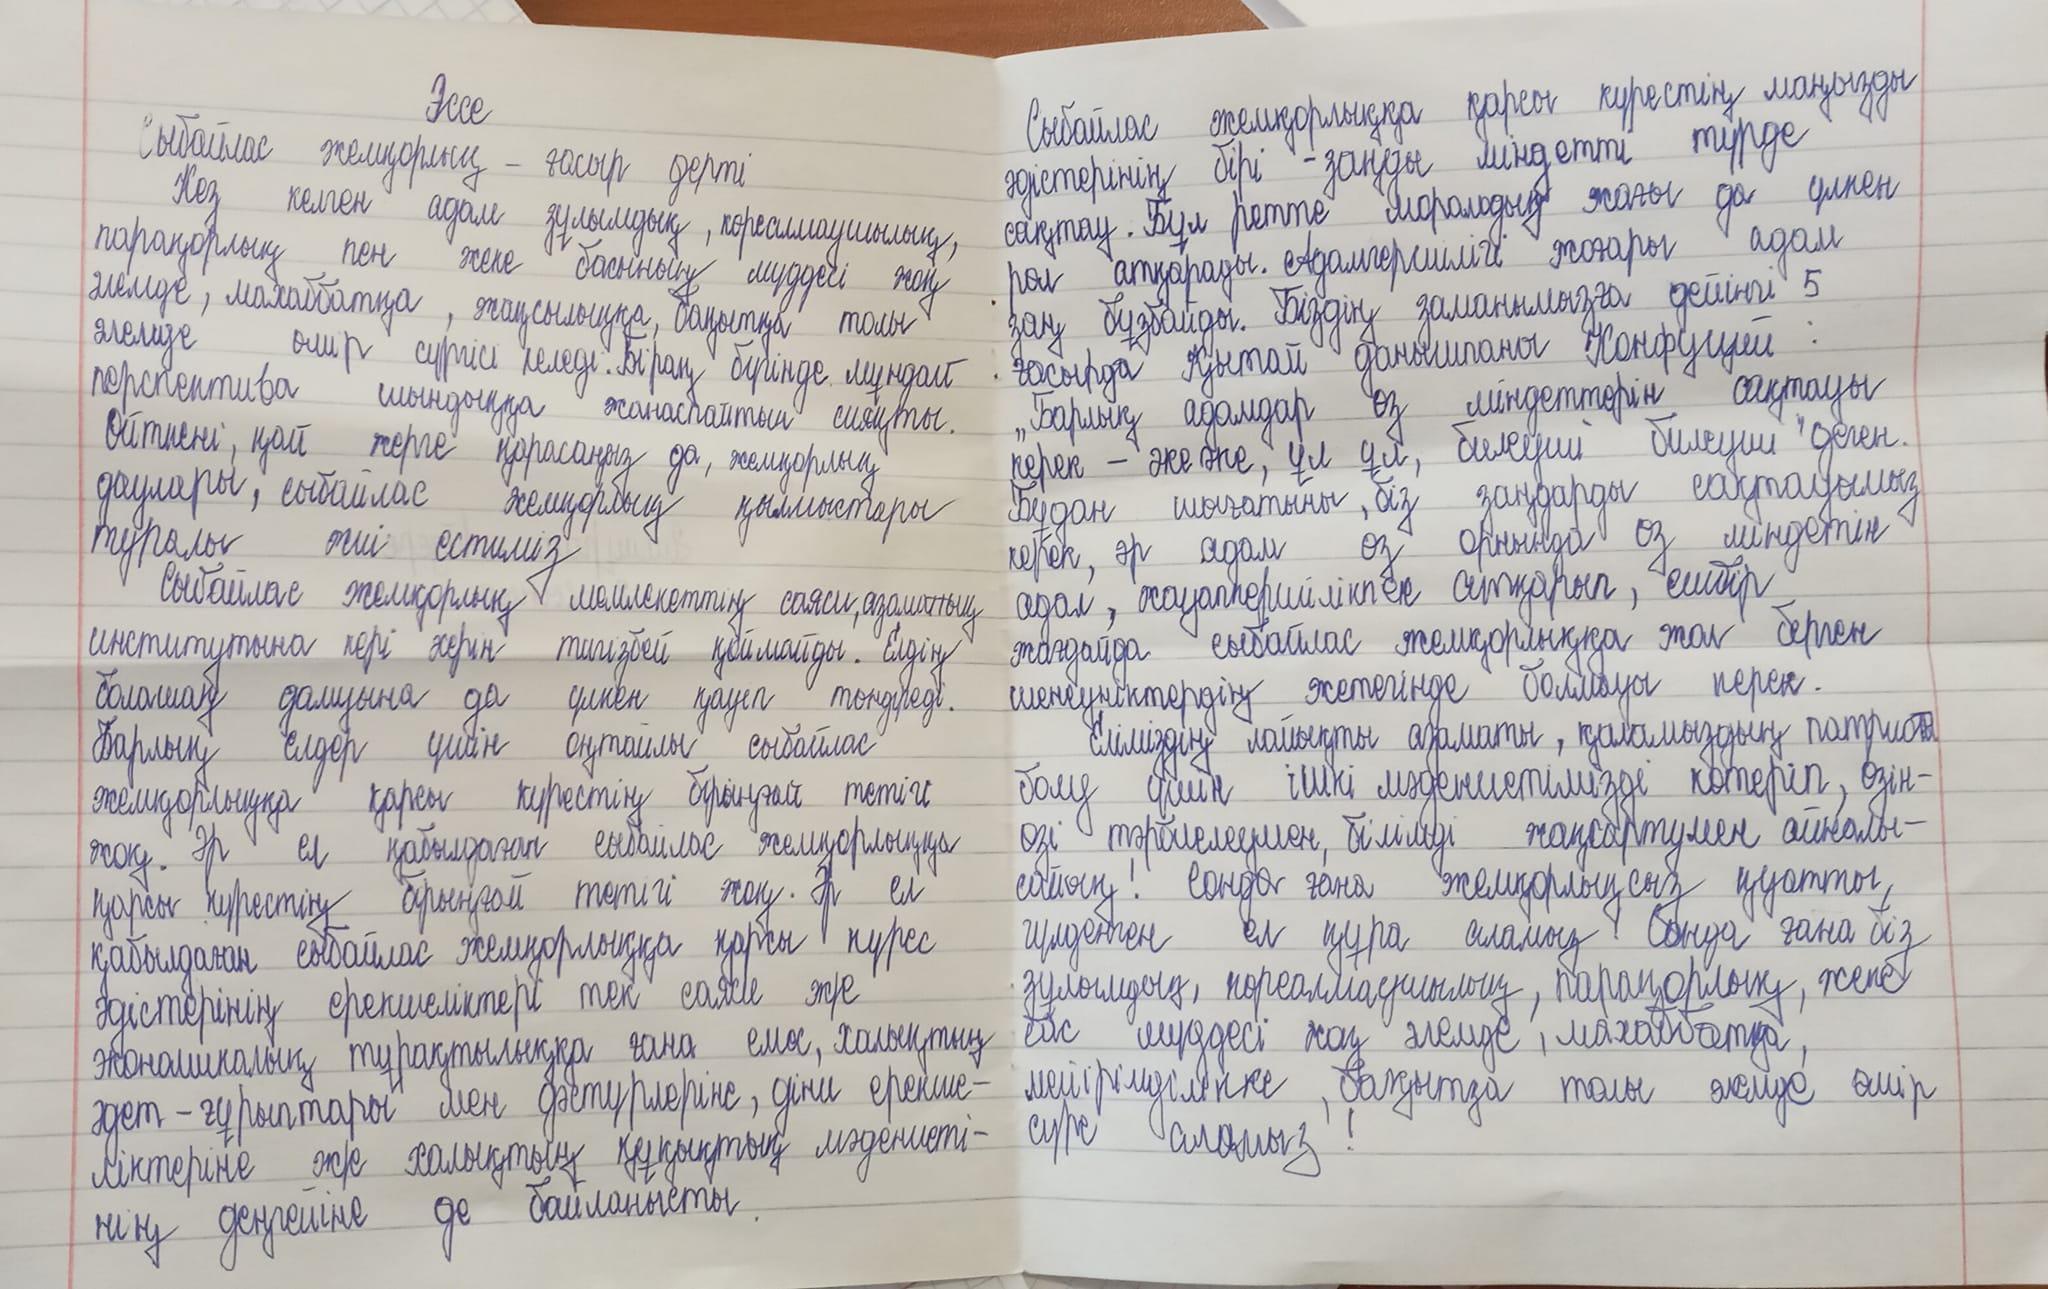 Эссе
Сыбайлас жемқорлық – ғасыр дерті
Кез келген адам зұлымдық, көреалмаушылық,
парақорлық пен жеке басының мүддесі жоқ
әлемде, махаббатқа, жақсылыққа, бақытқа толы
әлемде өмір сүргісі келеді. Бірақ бүгінде мұндай
перспектива шындыққа жанаспайтын сияқты.
Өйткені, қай жерге қарасаңыз да, жемқорлық
даулары, сыбайлас жемқорлық қылмыстары
туралы жиі естиміз
Сыбайлас жемқорлық мемлекеттің саяси, азаматтық
институтына кері әсерін тигізбей қоймайды. Елдің
болашақ дамуына да үлкен қауіп төндіреді.
Барлық елдер үшін оңтайлы сыбайлас
жемқорлыққа қарсы күрестің бірыңғай тетігі
жоқ. Әр ел қабылдаған сыбайлас жемқорлыққа
қарсы күрестің бірыңғай тетігі жоқ. Әр ел
қабылдаған сыбайлас жемқорлыққа қарсы күрес
әдістерінің ерекшеліктері тек саяси жәе
экономикалық тұрақтылыққа ғана емес, халықтың
әдет-ғұрыптары мен дәстүрлеріне, діни ерекше-
ліктеріне жәе халықтың құқықтық мәдениеті-
нің деңгейіне де байланысты.
Сыбайлас жемқорлыққа қарсы күрестің маңызды
әдістерінің бірі – заңды міндетті түрде
сақтау. Бұл ретте моральдық жағы да үлкен
рөл атқарады. Адамгершілігі жоғары адам
заң бұзбайды. Біздің заманымызға дейінгі 5
ғасырда Қытай данышпаны Конфуций :
„Барлық адамдар өз міндеттерін сақтауы
керек – әке әке, ұл ұл, билеуші билеуші" деген.
Бұдан шығатыны, біз заңдарды сақтауымыз
керек, әр адам өз орнында өз міндетін
адал, жауапкершілікпен атқарып, ешбір
жағдайда сыбайлас жемқорлыққа жол берген
шенеуніктердің жетегінде болмауы керек.
Еліміздің лайықты азаматы, қаламыздың патриоты
болу үшін ішкі мәдениетімізді көтеріп, өзін-
өзі тәрбиелеумен, білімді жақсартумен айналы-
сайық! Сонда ғана жемқорлықсыз қуатты,
гүлденген ел құра аламыз! Сонда ғана біз
зұлымдық, көреалмаушылық, парақорлық, жеке
бас мүддесі жоқ әлемде, махаббатқа,
мейірімділікке, бақытқа толы әлемде өмір
сүре аламыз!